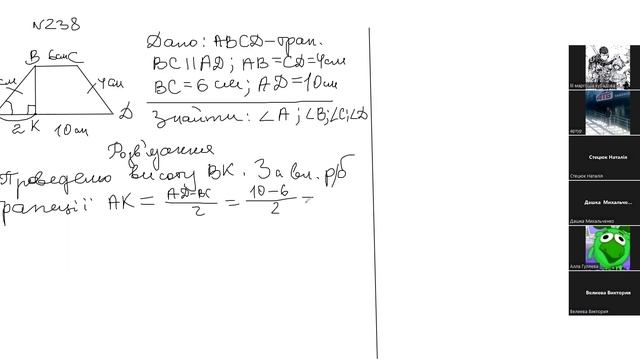 N238
B 6см C
см
4см
2 K 10см D
Дано: ABCD-трап.
BC || AD; AB=CD=4см
BC=6 см; AD=10см
Знайти: ∠A; ∠B; ∠C; ∠D
Розв'язання
Проведемо висоту BK. За вл. р/б
трапеції AK = AD-BC/2 = 10-6/2 =
Стецюк Наталія
Стецюк Наталія
Дашка Михальче...
Дашка Михальченко
Алла Гуляева
Велиева Виктория
Велиева Виктория